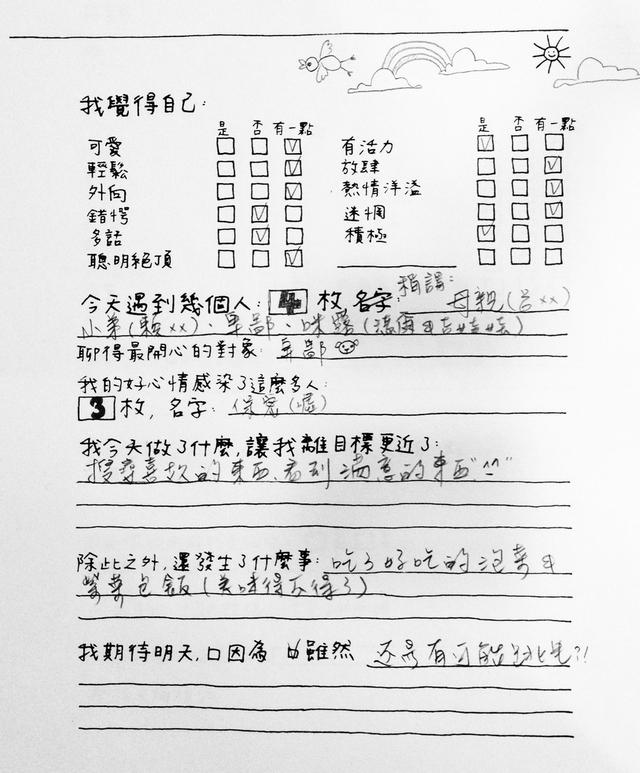 我覺得自己:
是 否 有一點 是 否 有一點
可愛 □ □ ☑ 有活力 ☑ □ □
輕鬆 □ □ ☑ 放肆 □ □ ☑
外向 □ □ ☑ 熱情洋溢 □ □ ☑
錯愕 □ ☑ □ 迷惘 □ □ ☑
多話 □ ☑ □ 積極 ☑ □ □
聰明絕頂 □ □ ☑
稍講:
今天遇到幾個人: 4 枚 名字: 母親(呂xx)
小弟(賴xx)、阜鄙、咪露
聊得最開心的對象: 阜鄙
我的好心情感染了這麼多人:
3 枚, 名字: 保密(噓)
我今天做了什麼, 讓我離目標更近了:
搜尋喜歡的東西、看到滿意的東西"^^"
除此之外, 還發生了什麼事: 吃了好吃的泡菜
紫菜包飯(美味得不得了)
我期待明天, □因為 ☑雖然 還是有可能